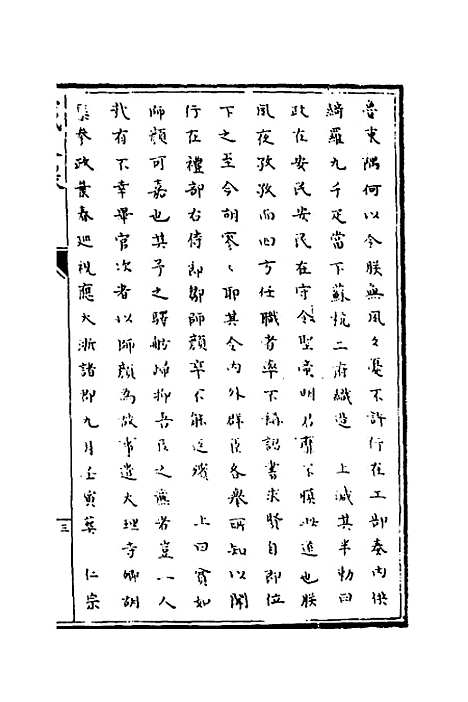 魯東隅何以令朕無風夙憂不許行在工部奏內供
綺羅九千疋當下蘇杭二府織造　上減其半勅曰
政在安民安民在守令聖帝明君靡不慎此選也朕
夙夜孜孜而四方任職者率下詔書求賢自即位
下之至今胡寥〻耶其令內外群臣各舉所知以聞
行在禮部右侍郎鄒師顏卒不能返殯　上曰實如
師顏可嘉也其予之驛船歸抑吾臣之廉者豈一人
我有不幸畢官次者以師顏為故事遣大理寺卿胡
參政葉春巡視應天浙諸郡九月壬寅葬　仁宗
三